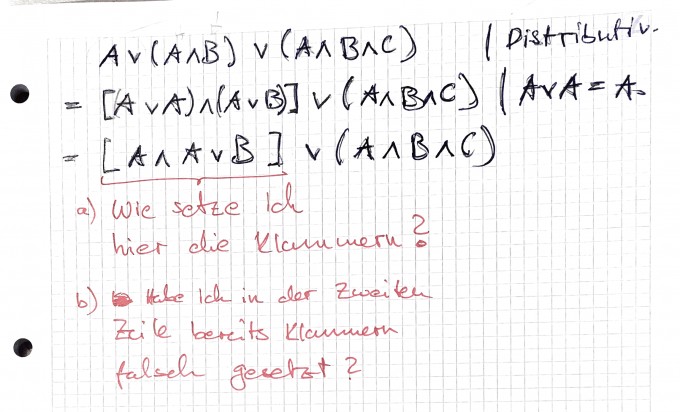 A ∨ (A ∧ B) ∨ (A ∧ B ∧ C) | Distributiv.
= [(A ∨ A) ∧ (A ∨ B)] ∨ (A ∧ B ∧ C) | A ∨ A = A.
= [A ∧ A ∨ B] ∨ (A ∧ B ∧ C)
a) Wie setze Ich
hier die Klammern?
b) Habe Ich in der zweiten
Zeile bereits Klammern
falsch gesetzt?